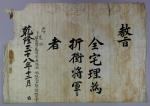 敎旨
全宅理爲
折衝將軍
者
乾隆三十八年十二月 日